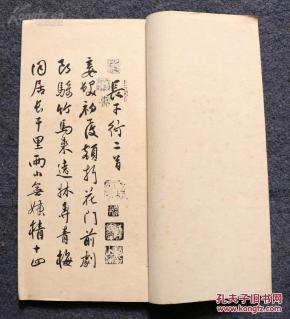 長干行二首
妾髮初覆額折花門前劇
郎騎竹馬來遶牀弄青梅
同居長干里兩小無嫌猜十四
孔夫子旧书网